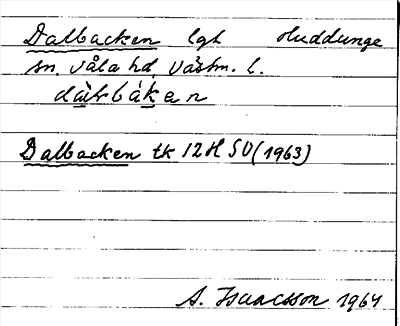 Dalbacken lgh Huddunge
sn. Våla hd, Västm. l.
dàlbáken
Dalbacken tk 12H SV (1963)
A. Isaacsson 1964